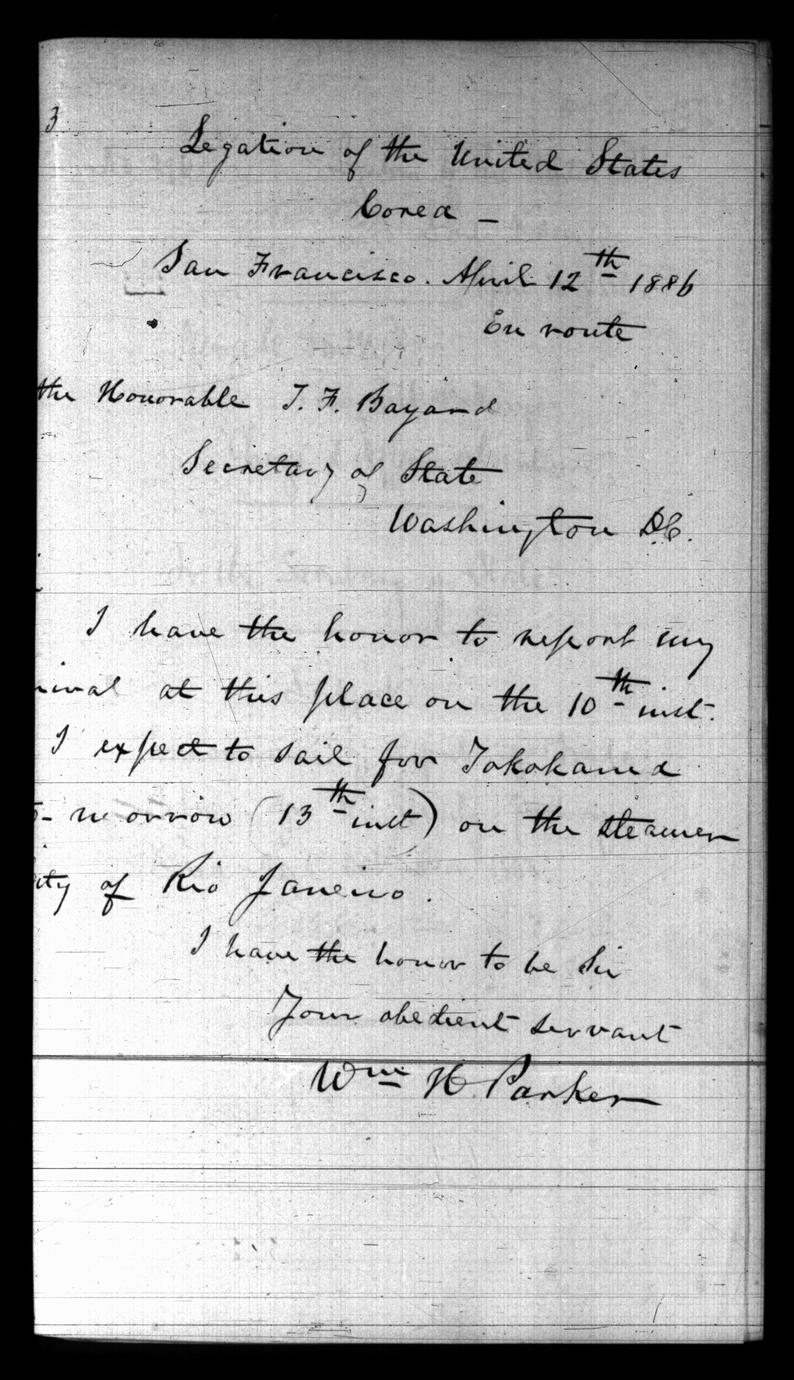 3
Legation of the United States
Corea -
San Francisco. April 12th 1886
En route
the Honorable T. F. Bayard
Secretary of State
Washington D.C.
I have the honor to report my
rival at this place on the 10th inst.
I expect to sail for Yokohama
o-morrow (13th inst) on the steamer
ity of Rio Janeiro.
I have the honor to be Sir
Your obedient servant
Wm H. Parker